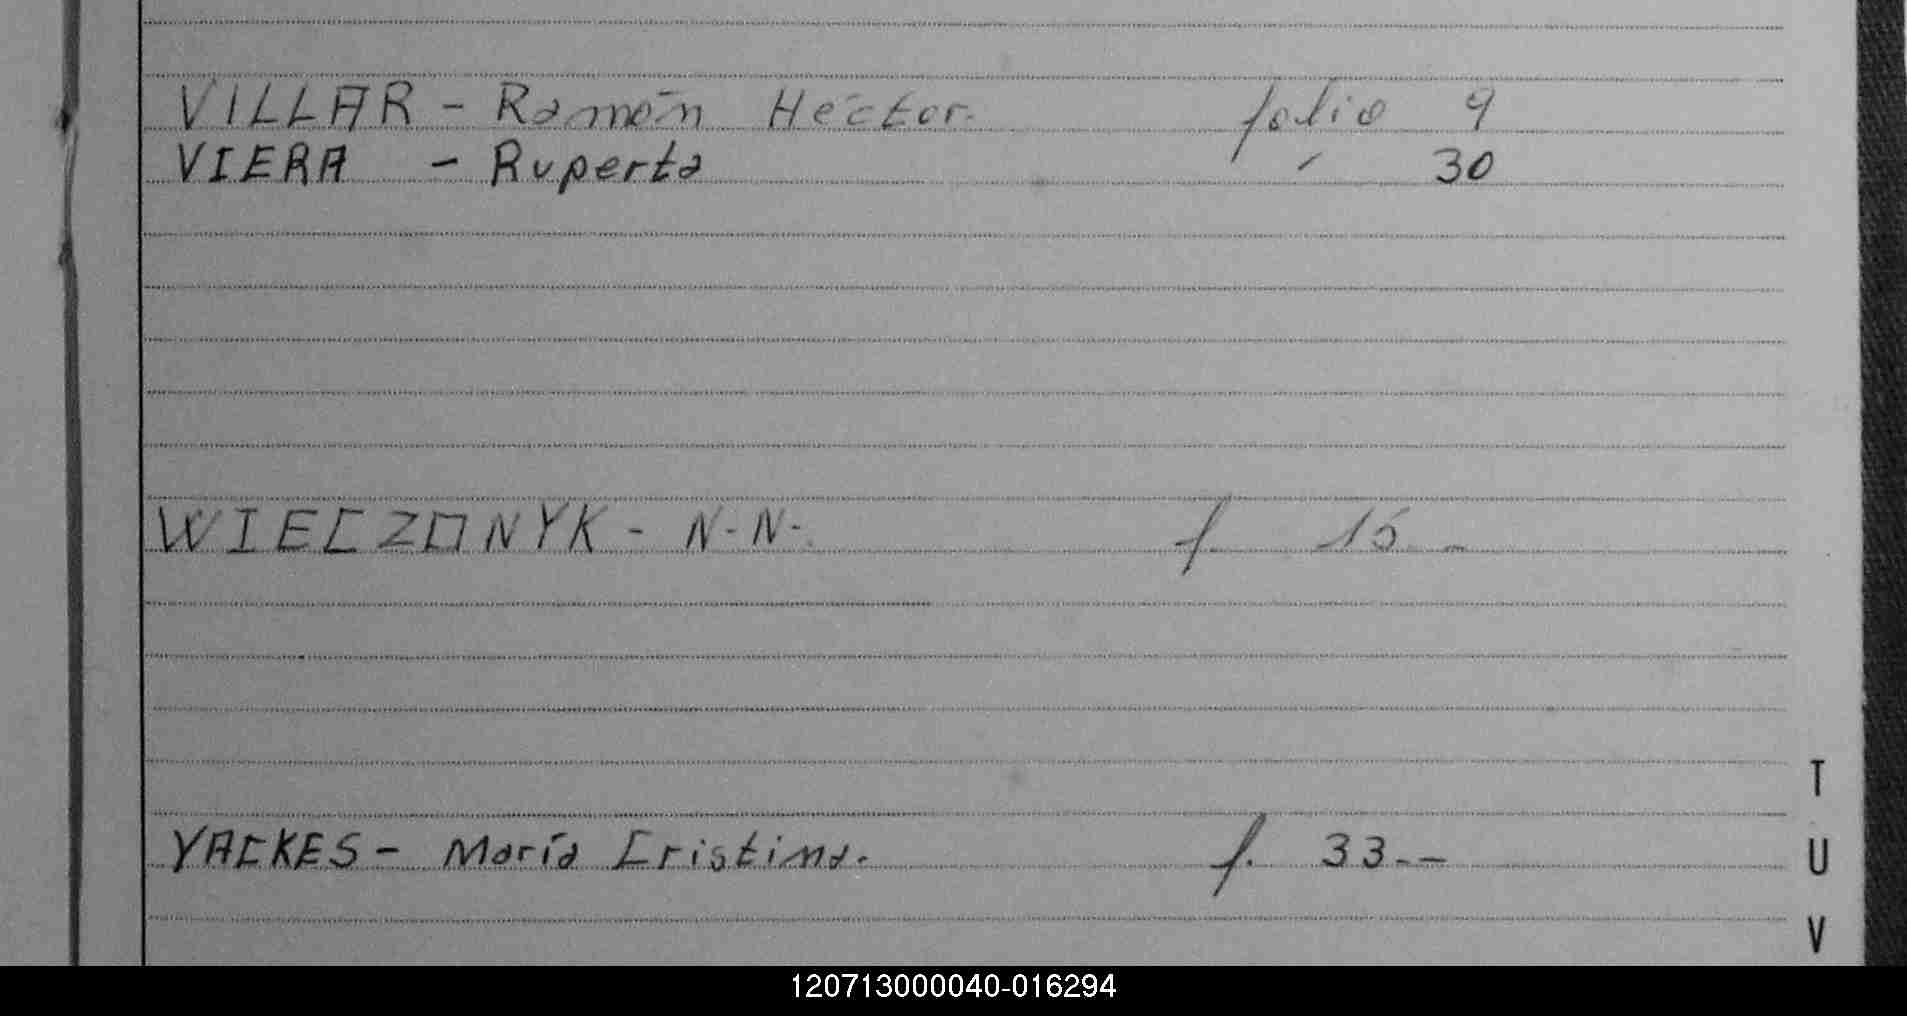 VILLAR - Ramón Héctor. folio 9
VIERA - Ruperta ″ 30
WIECZONYK - N.N. f. 15 -
YACKES - María Cristina. f. 33.--
T
U
V
120713000040-016294